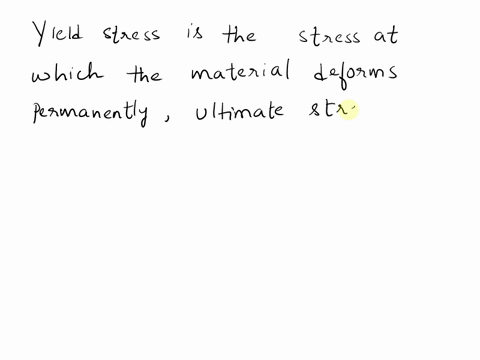 Yield stress is the stress at
which the material deforms
permanently, ultimate str